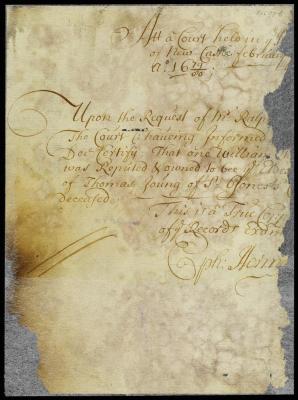 Att a Court held in ye
of New Castle February
Ao. 16 79/80
Upon the Request of Mr Ralp
The Court (haveing Informed
Doe Certify, That one William
was Reputed & owned to bee ye
of Thomas Young of St Jones's
deceased.
This is a True Copy
of ye Records Exam
Eph: Herm